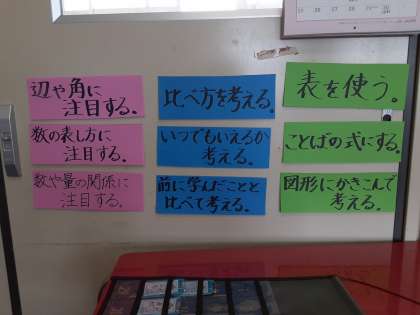 辺や角に
注目する。
比べ方を考える。
表を使う。
数の表し方に
注目する。
いつでもいえるか
考える。
ことばの式にする。
数や量の関係に
注目する。
前に学んだことと
比べて考える。
図形にかきこんで
考える。